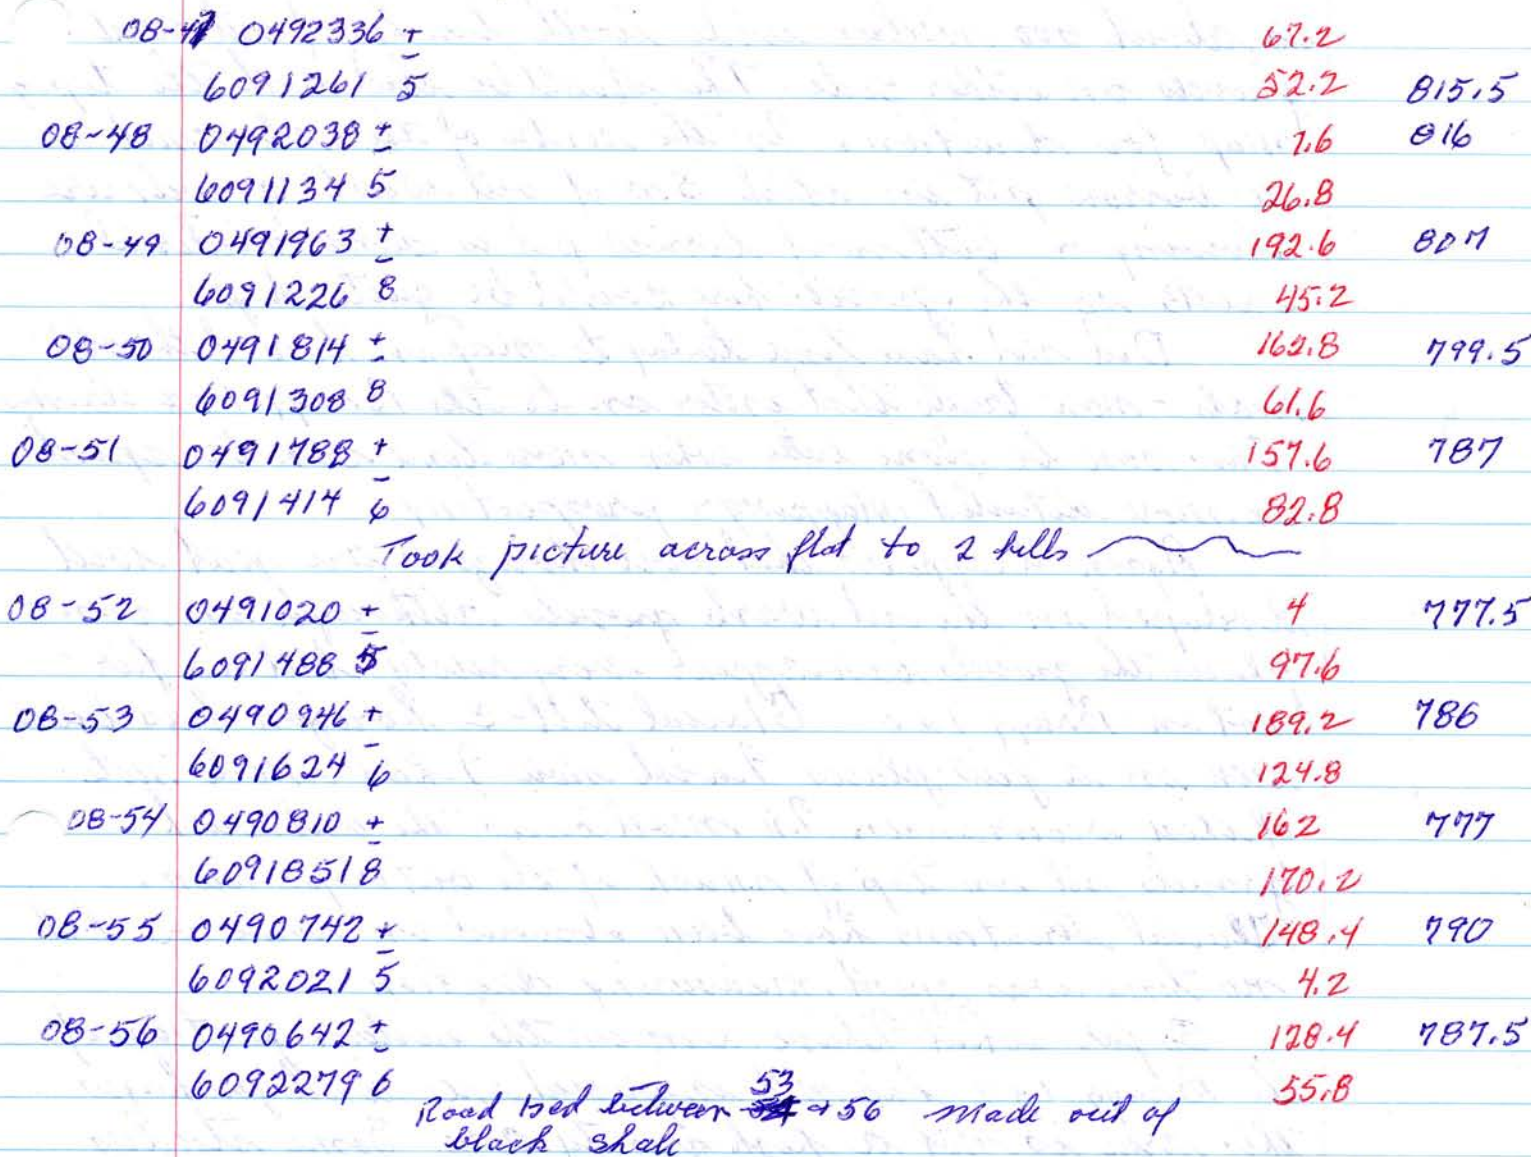 08-47 0492336 ± 67.2
6091261 5 52.2 815.5
08-48 0492038 ± 7.6 816
6091134 5 26.8
08-49 0491963 ± 192.6 807
6091226 8 45.2
08-50 0491814 ± 162.8 799.5
6091308 8 61.6
08-51 0491788 ± 157.6 787
6091414 6 82.8
Took picture across flat to 2 hills
08-52 0491020 ± 4 777.5
6091488 5 97.6
08-53 0490946 ± 189.2 786
6091624 6 124.8
08-54 0490810 ± 162 777
6091851 8 170.2
08-55 0490742 ± 148.4 790
6092021 5 4.2
08-56 0490642 ± 128.4 787.5
6092279 6 55.8
Road bed between 53 + 56 made out of
black shale